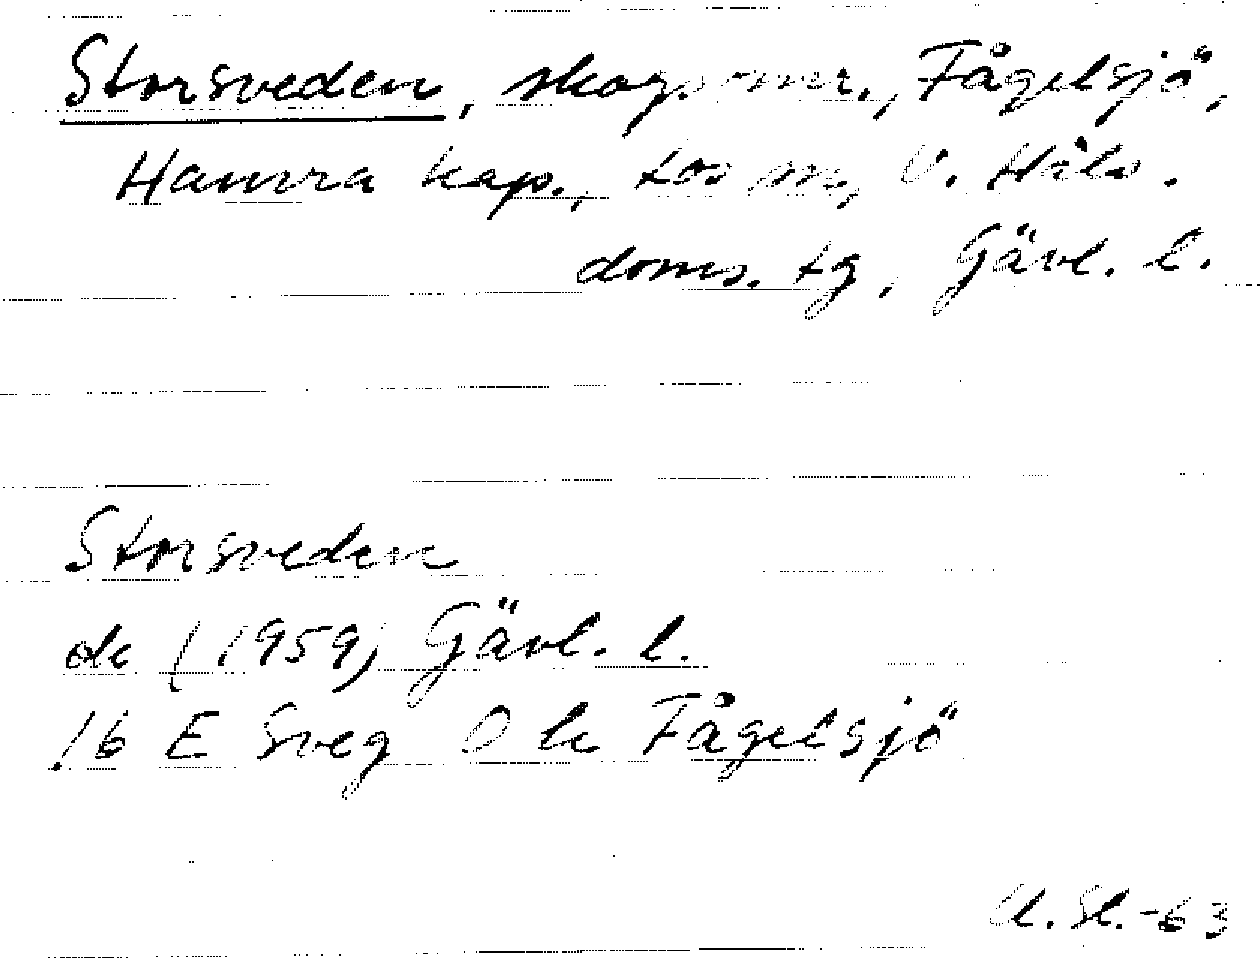 Storsveden, skogsomr., Fågelsjö,
Hamra kap., tos m, V. Häls.
doms. tg, Gävl. l.
Storsveden
ek (1959) Gävl. l.
16 E Sveg O k Fågelsjö
U. Sl. -63